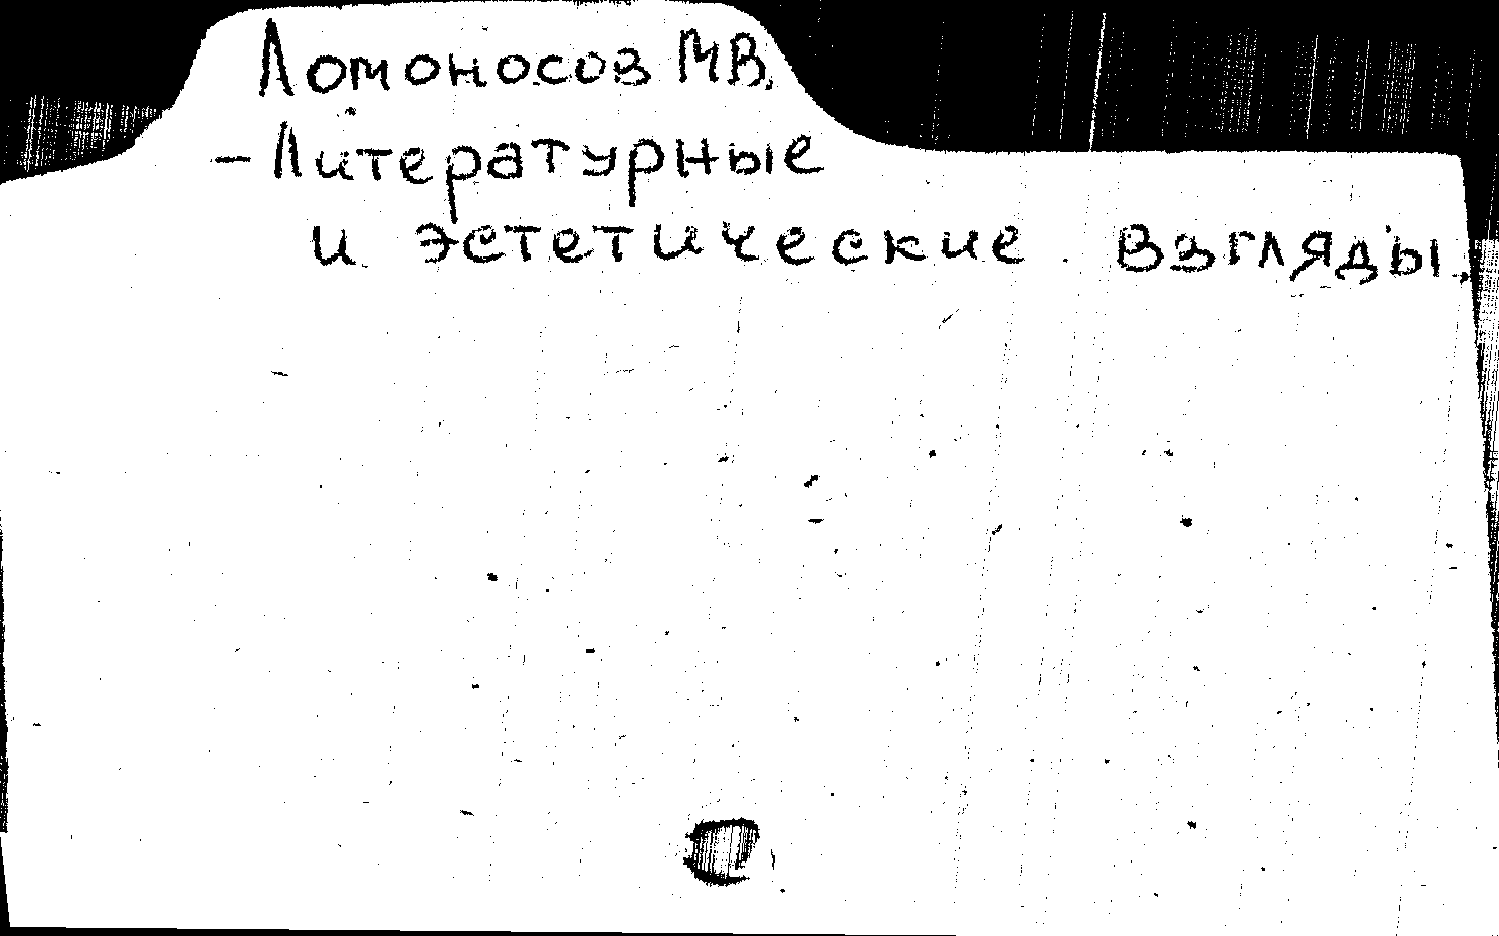 Ломоносов МВ.
- Литературные
и эстетические взгляды.